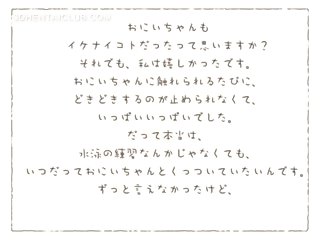 3DHENTAICLUB.COM
おにいちゃんも
イケナイコトだったって思いますか?
それでも、私は嬉しかったです。
おにいちゃんに触れられるたびに、
どきどきするのが止められなくて、
いっぱいいっぱいでした。
だって本当は、
水泳の練習なんかじゃなくても、
いつだっておにいちゃんとくっついていたいんです。
ずっと言えなかったけど、